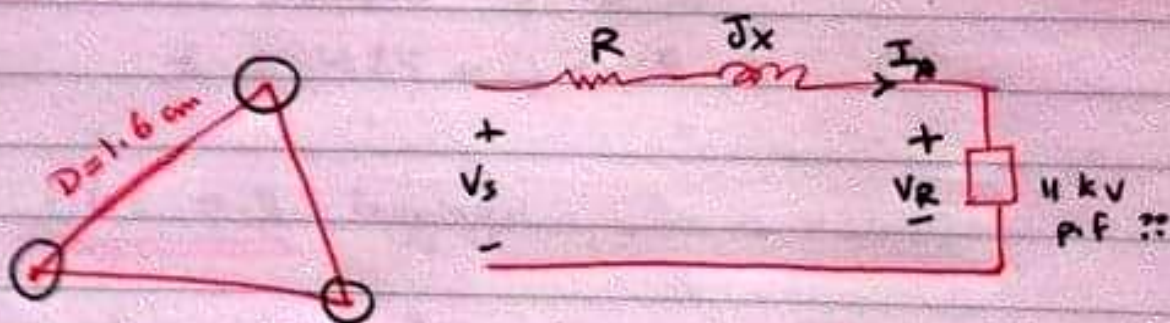 D=1.6 cm
R
Jx
I_R
+
Vs
-
+
VR
-
11 kV
p.f ??